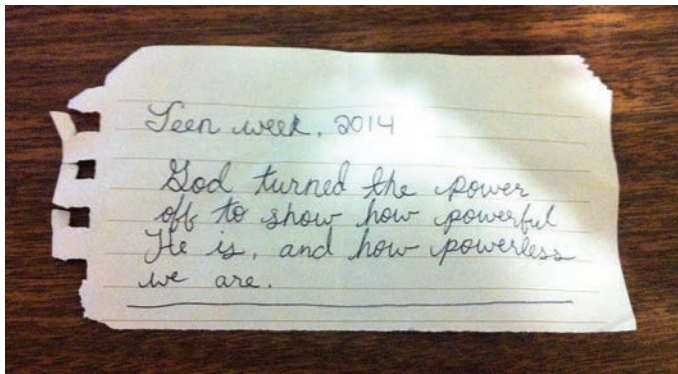 Teen week, 2014
God turned the power
off to show how powerful
He is, and how powerless
we are.